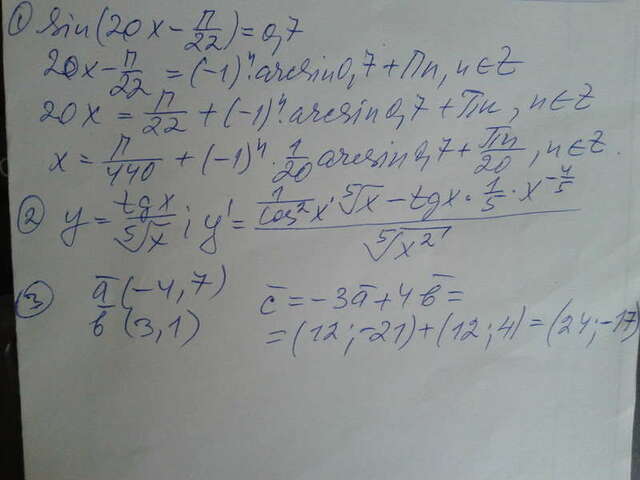 ① sin(20x - π/22) = 0,7
20x - π/22 = (-1)ⁿ·arcsin0,7 + πn, n ∈ Z
20x = π/22 + (-1)ⁿ·arcsin0,7 + πn, n ∈ Z
x = π/440 + (-1)ⁿ · 1/20 arcsin0,7 + πn/20, n ∈ Z.
② y = tgx/⁵√x; y' = (1/cos²x · ⁵√x - tgx · 1/5 · x^(-4/5))/⁵√x²
③ a̅ (-4, 7) c̅ = -3a̅ + 4b̅ =
b̅ (3, 1) = (12; -21) + (12; 4) = (24; -17)